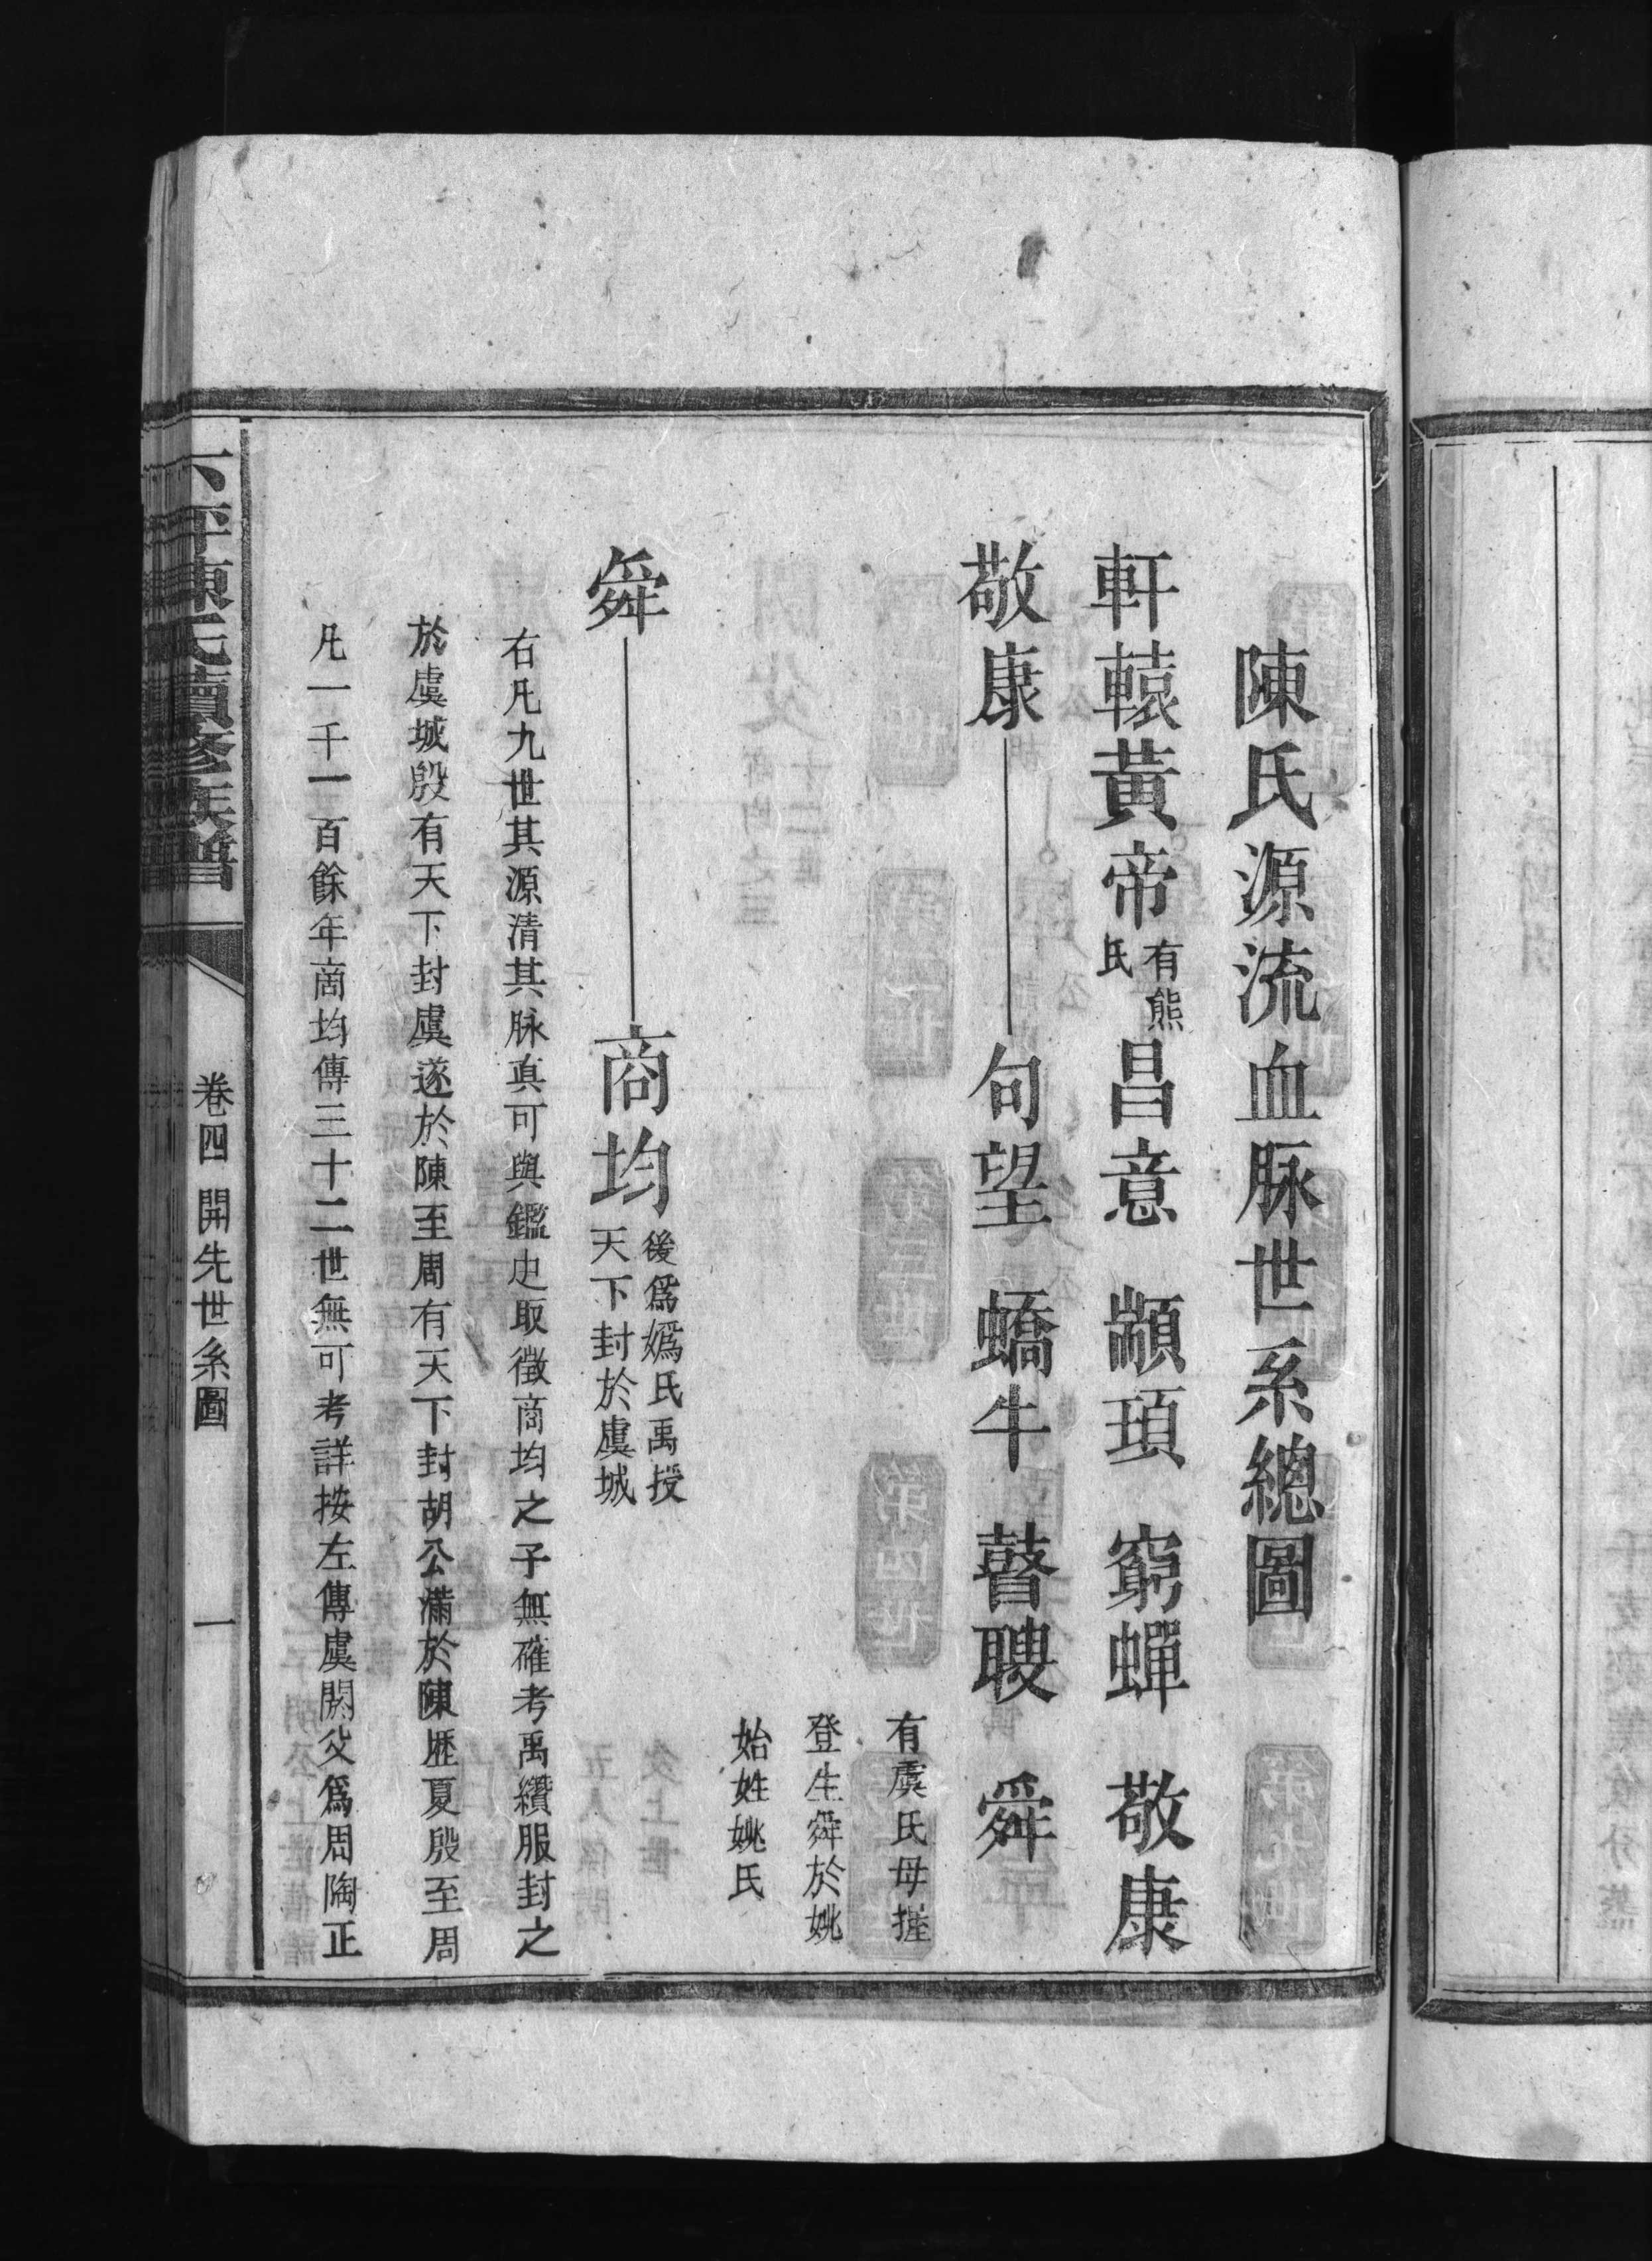 陳氏源流血脉世系總圖
軒轅黃帝有熊氏昌意 顓頊 窮蟬 敬康
敬康 句望 蟜牛 瞽瞍 舜
有虞氏母握
登生舜於姚
始姓姚氏
舜 商均後爲嬀氏禹授天下封於虞城
右凡九世其源清其脉眞可與鑑史取徵商均之子無確考禹纘服封之
於虞城殷有天下封虞遂於陳至周有天下封胡公滿於陳歷夏殷至周
凡一千一百餘年商均傳三十二世無可考詳按左傳虞閼父爲周陶正
陳氏續修族譜
卷四 開先世系圖 一